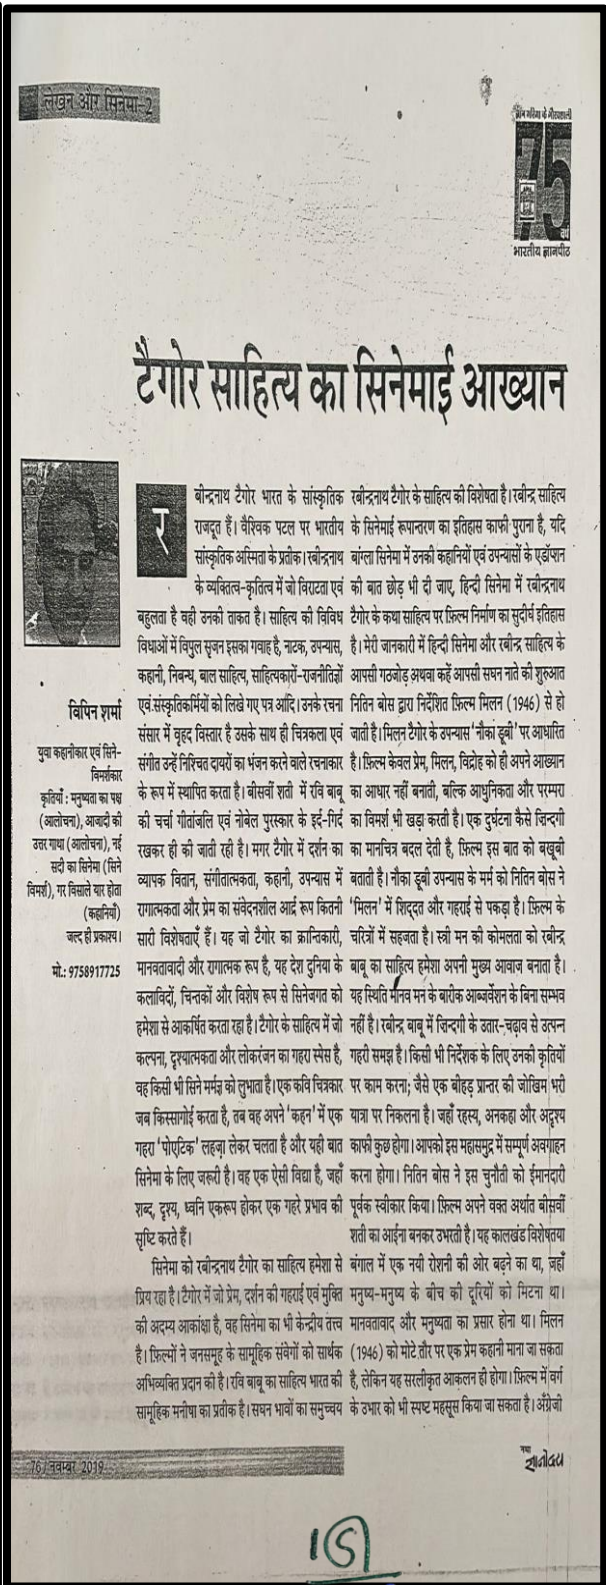 लेखन और सिनेमा-2
75
वर्ष
भारतीय ज्ञानपीठ
टैगोर साहित्य का सिनेमाई आख्यान
विपिन शर्मा
युवा कहानीकार एवं सिने-
विमर्शकार
कृतियाँ : मनुष्यता का पक्ष
(आलोचना), आजादी की
उत्तर गाथा (आलोचना), नई
सदी का सिनेमा (सिने
विमर्श), गर विसाले यार होता
(कहानियाँ)
जल्द ही प्रकाश्य।
मो.: 9758917725
र
बीन्द्रनाथ टैगोर भारत के सांस्कृतिक
राजदूत हैं। वैश्विक पटल पर भारतीय
सांस्कृतिक अस्मिता के प्रतीक। रबीन्द्रनाथ
के व्यक्तित्व-कृतित्व में जो विराटता एवं
बहुलता है वही उनकी ताकत है। साहित्य की विविध
विधाओं में विपुल सृजन इसका गवाह है, नाटक, उपन्यास,
कहानी, निबन्ध, बाल साहित्य, साहित्यकारों-राजनीतिज्ञों
एवं संस्कृतिकर्मियों को लिखे गए पत्र आदि। उनके रचना
संसार में वृहद विस्तार है उसके साथ ही चित्रकला एवं
संगीत उन्हें निश्चित दायरों का भंजन करने वाले रचनाकार
के रूप में स्थापित करता है। बीसवीं शती में रवि बाबू
की चर्चा गीतांजलि एवं नोबेल पुरस्कार के इर्द-गिर्द
रखकर ही की जाती रही है। मगर टैगोर में दर्शन का
व्यापक वितान, संगीतात्मकता, कहानी, उपन्यास में
रागात्मकता और प्रेम का संवेदनशील आर्द्र रूप कितनी
सारी विशेषताएँ हैं। यह जो टैगोर का क्रान्तिकारी,
मानवतावादी और रागात्मक रूप है, यह देश दुनिया के
कलाविदों, चिन्तकों और विशेष रूप से सिनेजगत को
हमेशा से आकर्षित करता रहा है। टैगोर के साहित्य में जो
कल्पना, दृश्यात्मकता और लोकरंजन का गहरा स्पेस है,
वह किसी भी सिने मर्मज्ञ को लुभाता है। एक कवि चित्रकार
जब किस्सागोई करता है, तब वह अपने 'कहन' में एक
गहरा 'पोएटिक' लहज़ा लेकर चलता है और यही बात
सिनेमा के लिए जरूरी है। वह एक ऐसी विद्या है, जहाँ
शब्द, दृश्य, ध्वनि एकरूप होकर एक गहरे प्रभाव की
सृष्टि करते हैं।
सिनेमा को रबीन्द्रनाथ टैगोर का साहित्य हमेशा से
प्रिय रहा है। टैगोर में जो प्रेम, दर्शन की गहराई एवं मुक्ति
की अदम्य आकांक्षा है, वह सिनेमा का भी केन्द्रीय तत्त्व
है। फ़िल्मों ने जनसमूह के सामूहिक संवेगों को सार्थक
अभिव्यक्ति प्रदान की है। रवि बाबू का साहित्य भारत की
सामूहिक मनीषा का प्रतीक है। सघन भावों का समुच्चय
रबीन्द्रनाथ टैगोर के साहित्य की विशेषता है। रबीन्द्र साहित्य
के सिनेमाई रूपान्तरण का इतिहास काफी पुराना है, यदि
बांग्ला सिनेमा में उनकी कहानियों एवं उपन्यासों के एडॉप्शन
की बात छोड़ भी दी जाए, हिन्दी सिनेमा में रबीन्द्रनाथ
टैगोर के कथा साहित्य पर फ़िल्म निर्माण का सुदीर्घ इतिहास
है। मेरी जानकारी में हिन्दी सिनेमा और रबीन्द्र साहित्य के
आपसी गठजोड़ अथवा कहें आपसी सघन नाते की शुरुआत
नितिन बोस द्वारा निर्देशित फ़िल्म मिलन (1946) से हो
जाती है। मिलन टैगोर के उपन्यास 'नौका डूबी' पर आधारित
है। फ़िल्म केवल प्रेम, मिलन, विद्रोह को ही अपने आख्यान
का आधार नहीं बनाती, बल्कि आधुनिकता और परम्परा
का विमर्श भी खड़ा करती है। एक दुर्घटना कैसे जिन्दगी
का मानचित्र बदल देती है, फ़िल्म इस बात को बखूबी
बताती है। नौका डूबी उपन्यास के मर्म को नितिन बोस ने
'मिलन' में शिद्दत और गहराई से पकड़ा है। फ़िल्म के
चरित्रों में सहजता है। स्त्री मन की कोमलता को रबीन्द्र
बाबू का साहित्य हमेशा अपनी मुख्य आवाज़ बनाता है।
यह स्थिति मानव मन के बारीक आब्जर्वेशन के बिना सम्भव
नहीं है। रबीन्द्र बाबू में जिन्दगी के उतार-चढ़ाव से उत्पन्न
गहरी समझ है। किसी भी निर्देशक के लिए उनकी कृतियों
पर काम करना; जैसे एक बीहड़ प्रान्तर की जोखिम भरी
यात्रा पर निकलना है। जहाँ रहस्य, अनकहा और अदृश्य
काफी कुछ होगा। आपको इस महासमुद्र में सम्पूर्ण अवगाहन
करना होगा। नितिन बोस ने इस चुनौती को ईमानदारी
पूर्वक स्वीकार किया। फ़िल्म अपने वक्त अर्थात बीसवीं
शती का आईना बनकर उभरती है। यह कालखंड विशेषतया
बंगाल में एक नयी रोशनी की ओर बढ़ने का था, जहाँ
मनुष्य-मनुष्य के बीच की दूरियों को मिटना था।
मानवतावाद और मनुष्यता का प्रसार होना था। मिलन
(1946) को मोटे तौर पर एक प्रेम कहानी माना जा सकता
है, लेकिन यह सरलीकृत आकलन ही होगा। फ़िल्म में वर्ग
के उभार को भी स्पष्ट महसूस किया जा सकता है। अँग्रेजी
76 / नवम्बर 2019
नया
ज्ञानोदय